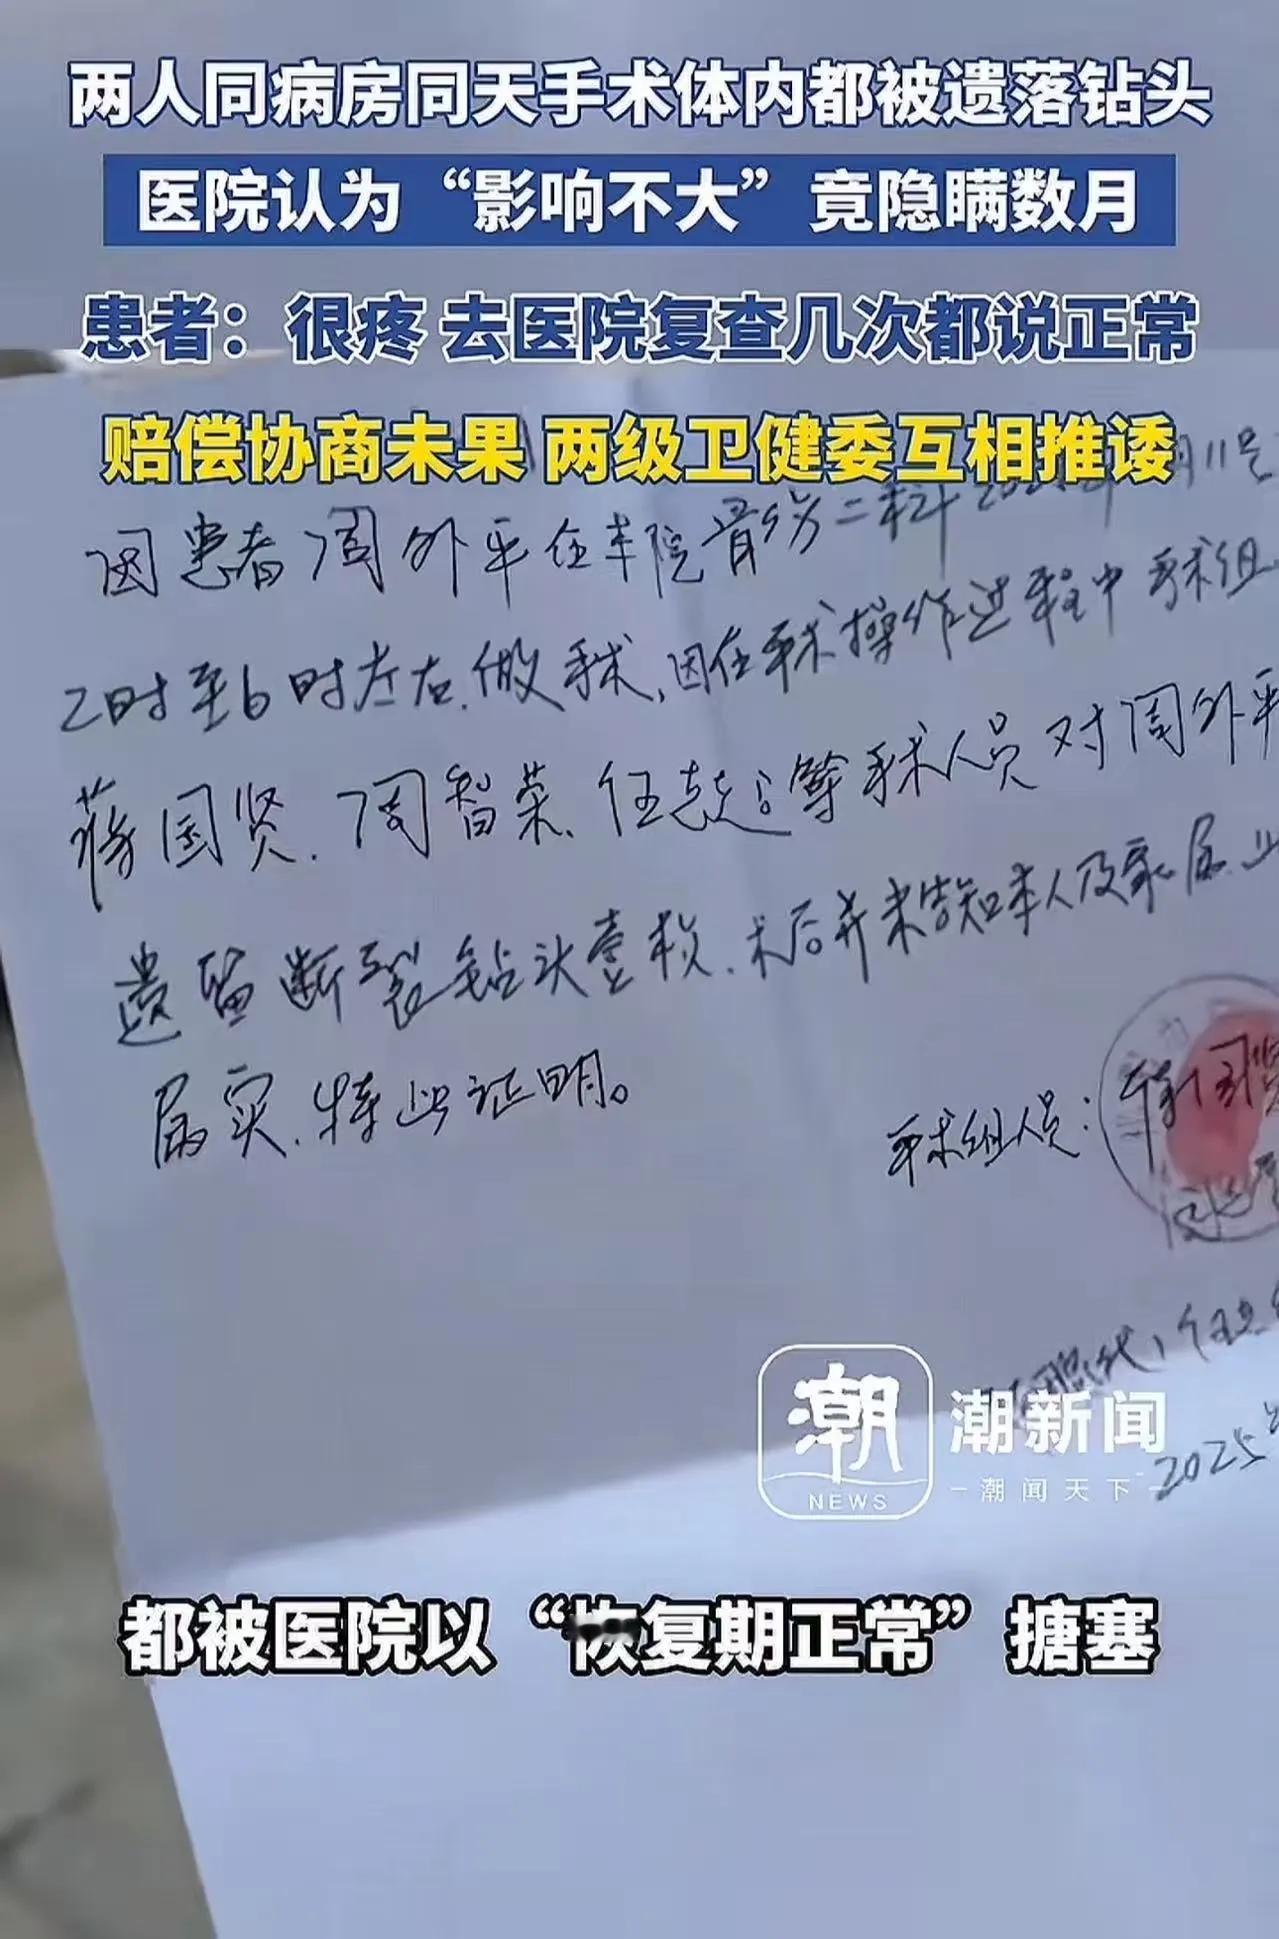 两人同病房同天手术体内都被遗落钻头
医院认为“影响不大”竟隐瞒数月
患者：很疼 去医院复查几次都说正常
赔偿协商未果 两级卫健委互相推诿
因患者周外平在本院骨伤二科 月11号
2时至6时左右.做手术,因在手术操作过程中手术组
蒋国贤.周智荣.任 等手术人员对周外平
遗留断裂钻头壹枚.术后并未告知本人及家属.
属实.特此证明。
手术组人员：蒋国贤
潮
NEWS
潮新闻
潮闻天下
2025
都被医院以“恢复期正常”搪塞